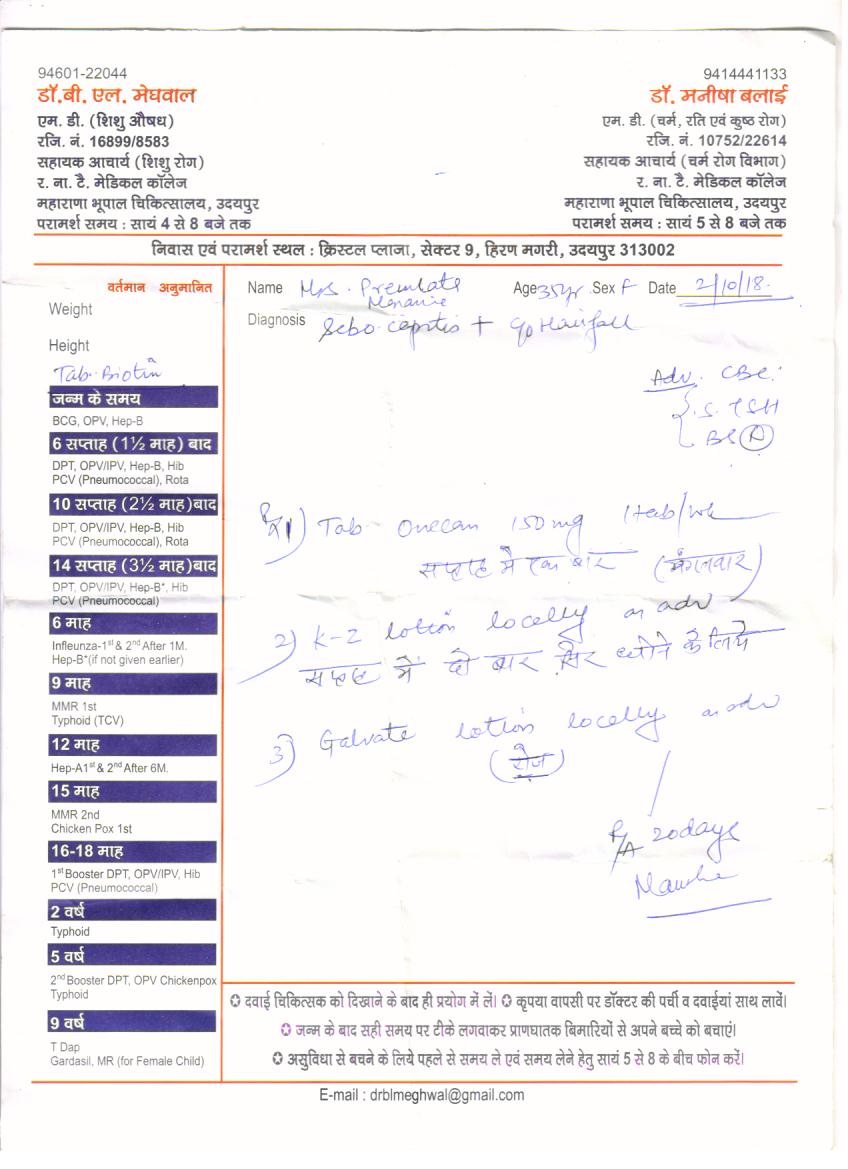 94601-22044
डॉ.बी. एल. मेघवाल
एम. डी. (शिशु औषध)
रजि. नं. 16899/8583
सहायक आचार्य (शिशु रोग)
र. ना. टै. मेडिकल कॉलेज
महाराणा भूपाल चिकित्सालय, उदयपुर
परामर्श समय : सायं 4 से 8 बजे तक
9414441133
डॉ. मनीषा बलाई
एम. डी. (चर्म, रति एवं कुष्ठ रोग)
रजि. नं. 10752/22614
सहायक आचार्य (चर्म रोग विभाग)
र. ना. टै. मेडिकल कॉलेज
महाराणा भूपाल चिकित्सालय, उदयपुर
परामर्श समय : सायं 5 से 8 बजे तक
निवास एवं परामर्श स्थल : क्रिस्टल प्लाजा, सेक्टर 9, हिरण मगरी, उदयपुर 313002
वर्तमान अनुमानित
Weight
Height
Tab. Biotin
जन्म के समय
BCG, OPV, Hep-B
6 सप्ताह (1½ माह) बाद
DPT, OPV/IPV, Hep-B, Hib
PCV (Pneumococcal), Rota
10 सप्ताह (2½ माह)बाद
DPT, OPV/IPV, Hep-B, Hib
PCV (Pneumococcal), Rota
14 सप्ताह (3½ माह)बाद
DPT, OPV/IPV, Hep-B*, Hib
PCV (Pneumococcal)
6 माह
Infleunza-1st & 2nd After 1M.
Hep-B*(if not given earlier)
9 माह
MMR 1st
Typhoid (TCV)
12 माह
Hep-A1st & 2nd After 6M.
15 माह
MMR 2nd
Chicken Pox 1st
16-18 माह
1st Booster DPT, OPV/IPV, Hib
PCV (Pneumococcal)
2 वर्ष
Typhoid
5 वर्ष
2nd Booster DPT, OPV Chickenpox
Typhoid
9 वर्ष
T Dap
Gardasil, MR (for Female Child)
Name Mrs. Premlata Age 35yr Sex F Date 2/10/18
Diagnosis Sebo + Hairfall
Adv. CBC
S. TSH
BS (R)
Rx 1) Tab Onecan 150mg 1tab/wk
सप्ताह में एक बार (मंगलवार)
2) K-Z lotion locally as adv
सप्ताह में दो बार सिर धोने के लिये
3) Galvate lotion locally as adv
(रोज)
R/A 20days
✪ दवाई चिकित्सक को दिखाने के बाद ही प्रयोग में लें। ✪ कृपया वापसी पर डॉक्टर की पर्ची व दवाईयां साथ लावें।
✪ जन्म के बाद सही समय पर टीके लगवाकर प्राणघातक बिमारियों से अपने बच्चे को बचाएं।
✪ असुविधा से बचने के लिये पहले से समय ले एवं समय लेने हेतु सायं 5 से 8 के बीच फोन करें।
E-mail : drblmeghwal@gmail.com